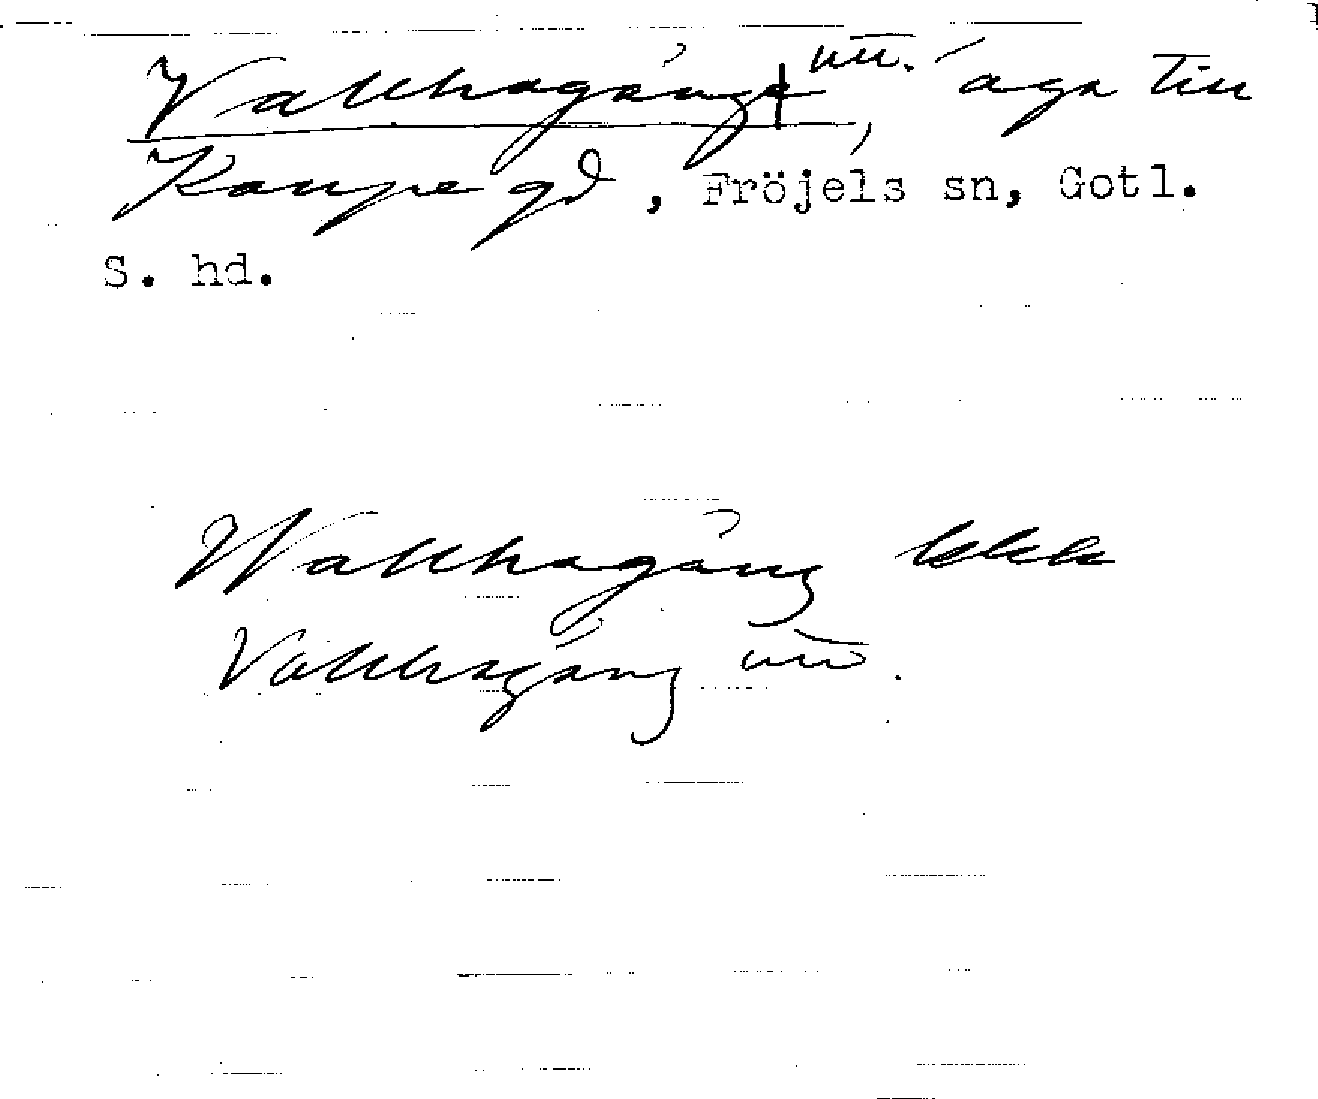 Vallhagång, äga till
Kaupe gd, Fröjels sn, Gotl.
S. hd.
Wallhagång
Vallhagång